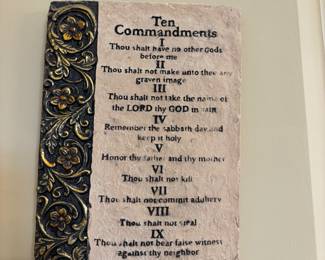 Ten
Commandments
I
Thou shalt have no other Gods
before me
II
Thou shalt not make unto thee any
graven image
III
Thou shalt not take the name of
the LORD thy GOD in vain
IV
Remember the sabbath day and
keep it holy
V
Honor thy father and thy mother
VI
Thou shalt not kill
VII
Thou shalt not commit adultery
VIII
Thou shalt not steal
IX
Thou shalt not bear false witness
against thy neighbor